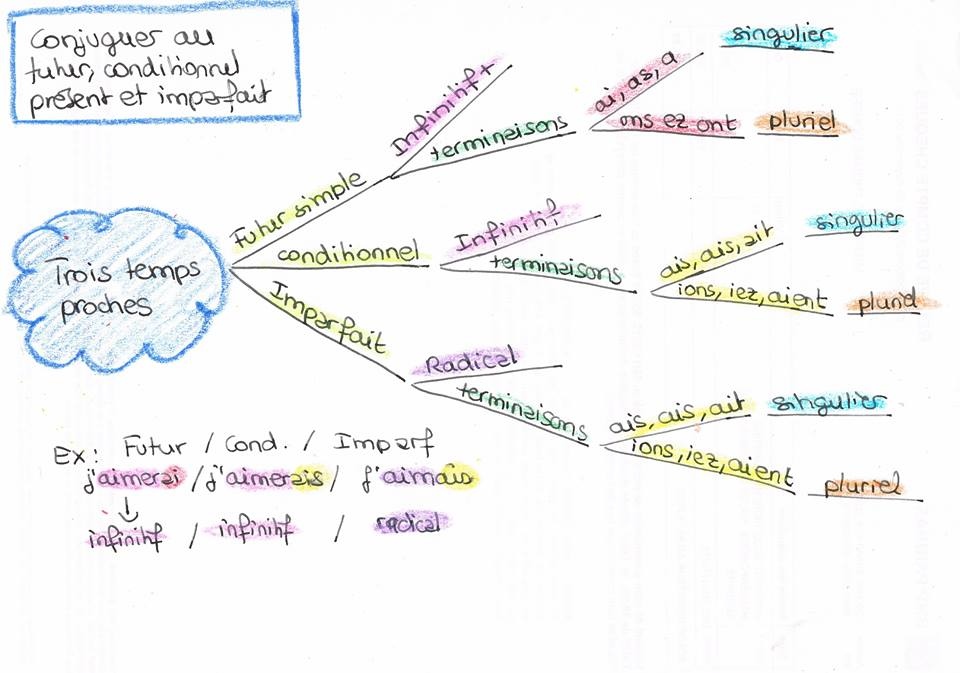 Conjuguer au
futur, conditionnel
présent et imparfait
Trois temps
proches
Futur simple
Infinitif +
terminaisons
ai, as, a
singulier
ons ez ont
pluriel
conditionnel
Infinitif
terminaisons
ais, ais, ait
singulier
ions, iez, aient
pluriel
Imparfait
Radical
terminaisons
ais, ais, ait
singulier
ions, iez, aient
pluriel
Ex: Futur / Cond. / Imparf
j'aimerai / j'aimerais / j'aimais
infinitif / infinitif / radical